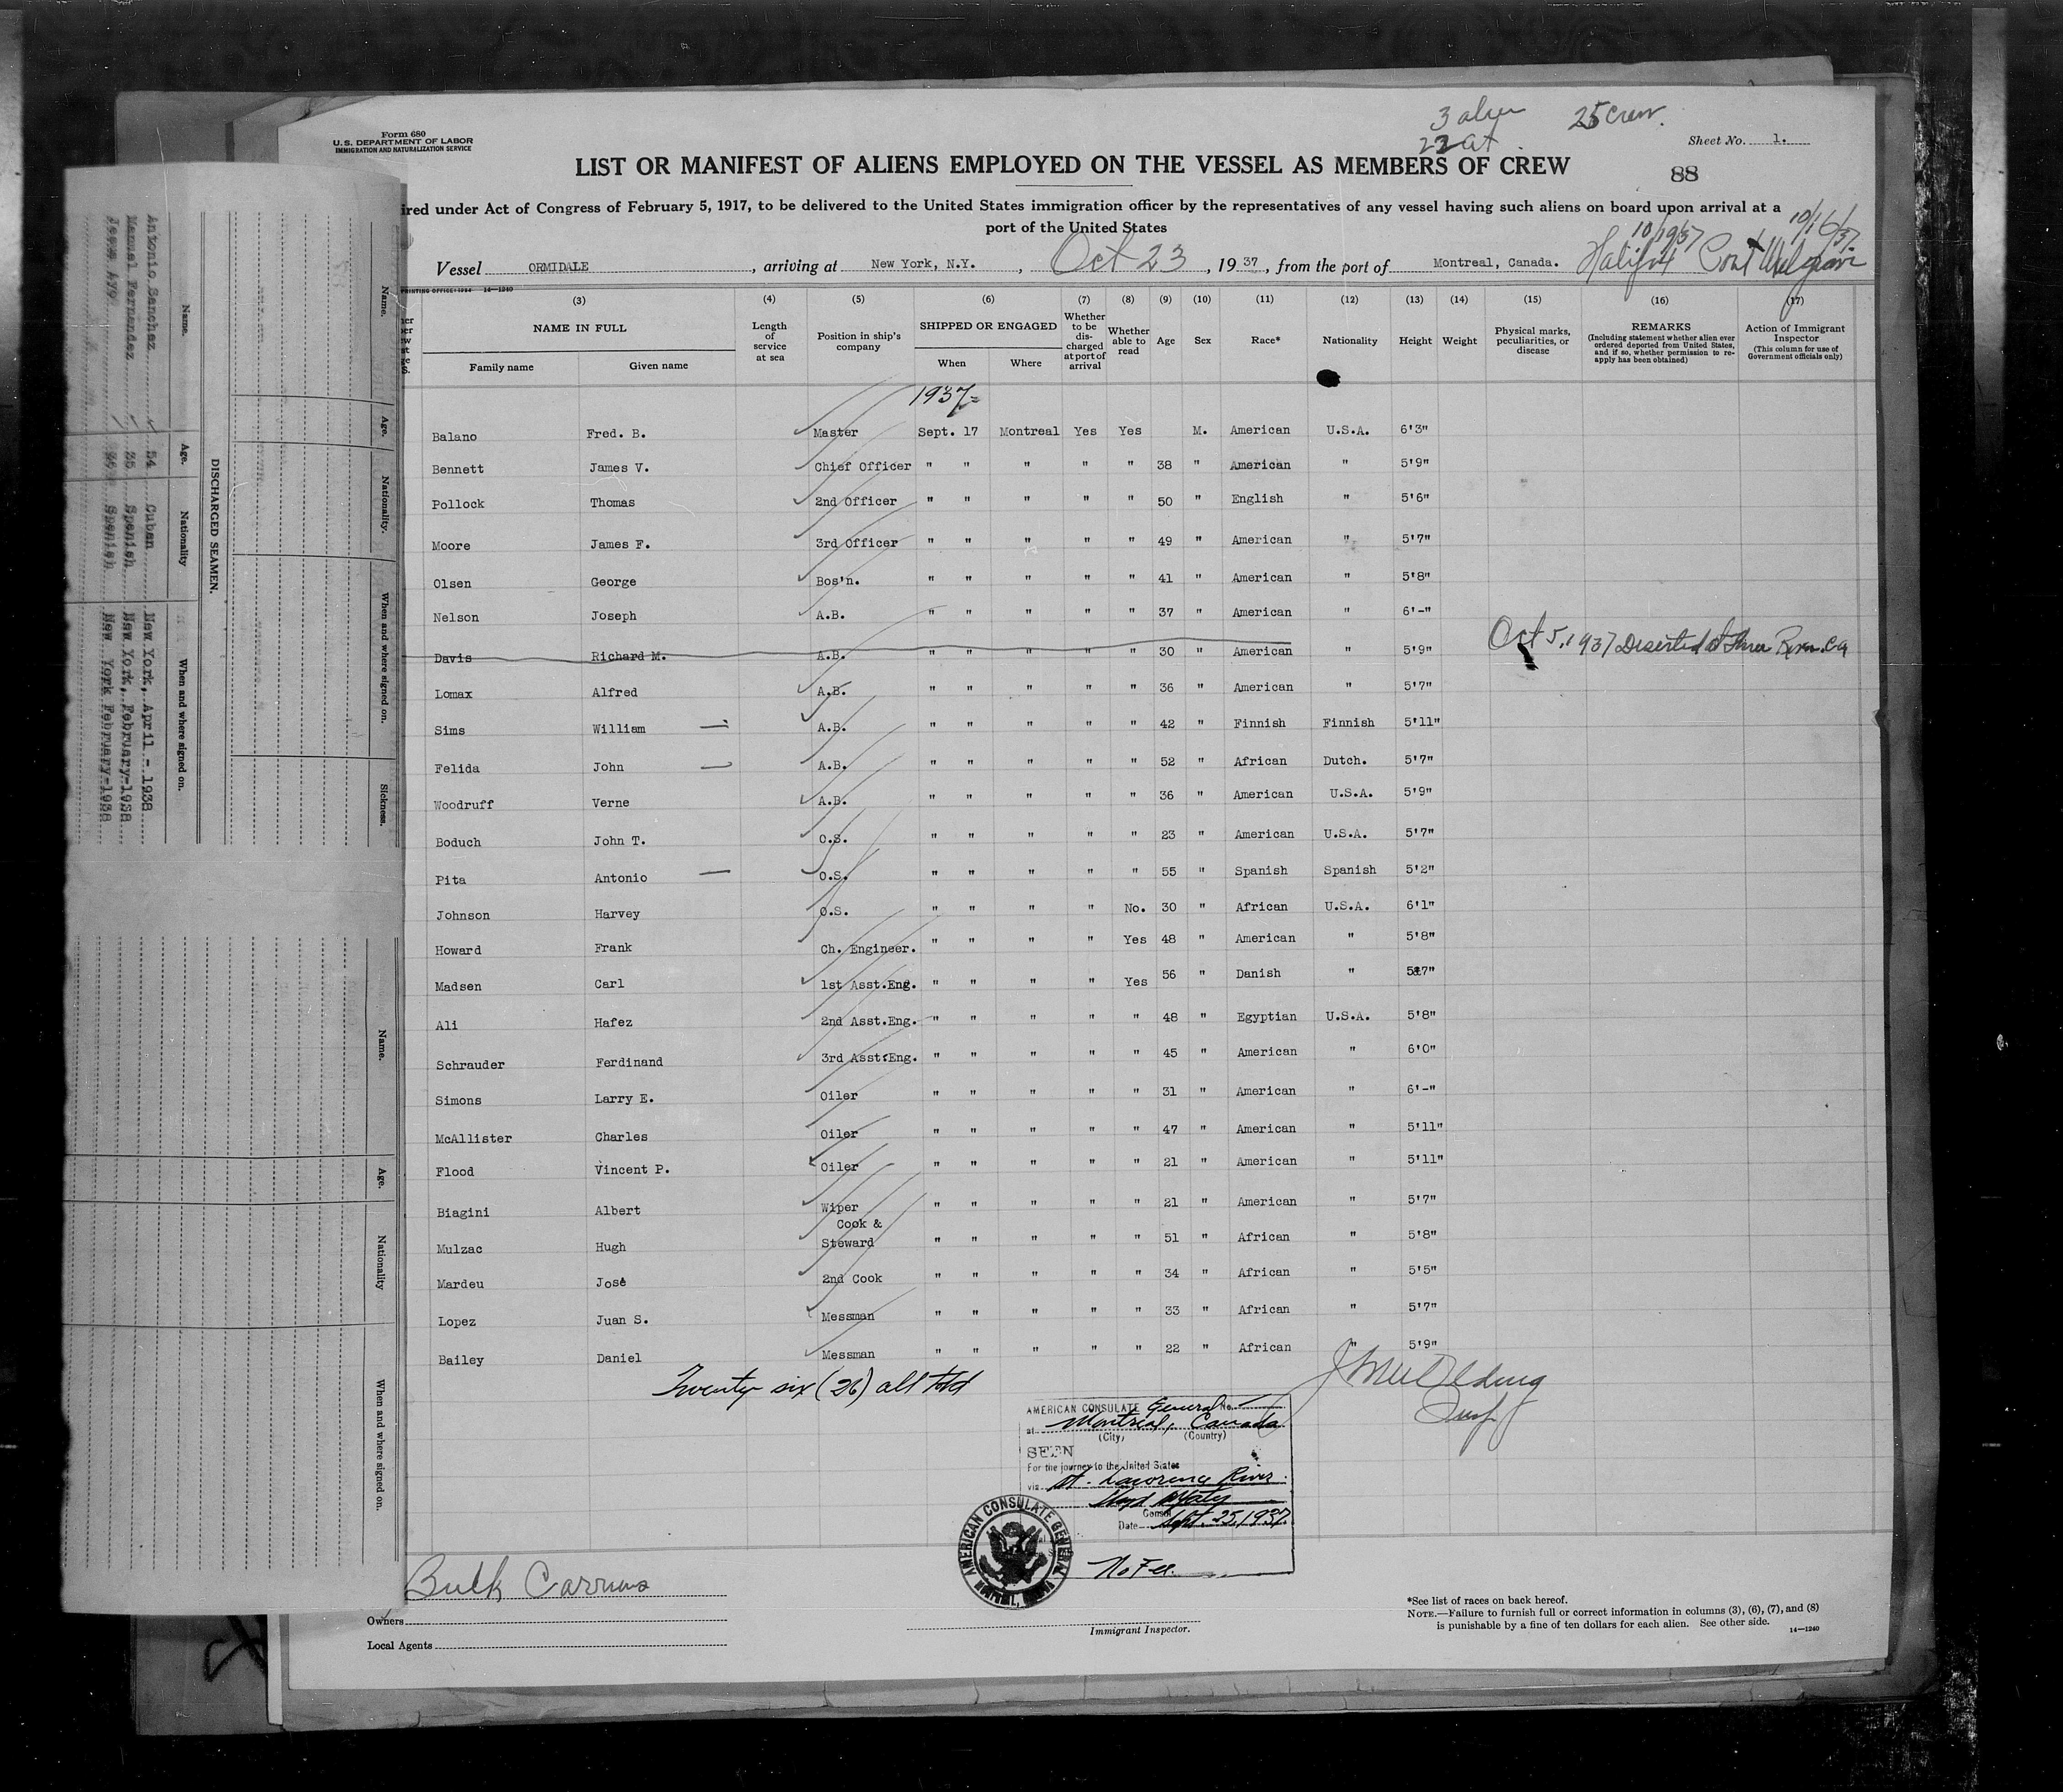 Form 680
U.S. DEPARTMENT OF LABOR
IMMIGRATION AND NATURALIZATION SERVICE
3 alien 25 crew.
22 cit.
Sheet No. 1.
LIST OR MANIFEST OF ALIENS EMPLOYED ON THE VESSEL AS MEMBERS OF CREW
88
ired under Act of Congress of February 5, 1917, to be delivered to the United States immigration officer by the representatives of any vessel having such aliens on board upon arrival at a
port of the United States
10/19/37 10/16/37
Vessel ORMIDALE, arriving at New York, N.Y., Oct 23, 1937, from the port of Montreal, Canada. Halifax Port
PRINTING OFFICE: 14—1240
(3) (4) (5) (6) (7) (8) (9) (10) (11) (12) (13) (14) (15) (16) (17)
NAME IN FULL Family name Given name
Length of service at sea
Position in ship's company
SHIPPED OR ENGAGED When Where
Whether to be discharged at port of arrival
Whether able to read
Age
Sex
Race*
Nationality
Height
Weight
Physical marks, peculiarities, or disease
REMARKS (Including statement whether alien ever ordered deported from United States, and if so, whether permission to reapply has been obtained)
Action of Immigrant Inspector (This column for use of Government officials only)
1937
Balano Fred. B. Master Sept. 17 Montreal Yes Yes M. American U.S.A. 6'3"
Bennett James V. Chief Officer " " " " " 38 " American " 5'9"
Pollock Thomas 2nd Officer " " " " " 50 " English " 5'6"
Moore James F. 3rd Officer " " " " " 49 " American " 5'7"
Olsen George Bos'n. " " " " " 41 " American " 5'8"
Nelson Joseph A.B. " " " " " 37 " American " 6'-"
Davis Richard M. A.B. " " " " " 30 " American " 5'9" Oct 5, 1937 Deserted at Three Rivers. Ca
Lomax Alfred A.B. " " " " " 36 " American " 5'7"
Sims William — A.B. " " " " " 42 " Finnish Finnish 5'11"
Felida John — A.B. " " " " " 52 " African Dutch. 5'7"
Woodruff Verne A.B. " " " " " 36 " American U.S.A. 5'9"
Boduch John T. O.S. " " " " " 23 " American U.S.A. 5'7"
Pita Antonio — O.S. " " " " " 55 " Spanish Spanish 5'2"
Johnson Harvey O.S. " " " " No. 30 " African U.S.A. 6'1"
Howard Frank Ch. Engineer. " " " " Yes 48 " American " 5'8"
Madsen Carl 1st Asst.Eng. " " " " Yes 56 " Danish " 5'7"
Ali Hafez 2nd Asst.Eng. " " " " " 48 " Egyptian U.S.A. 5'8"
Schrauder Ferdinand 3rd Asst.Eng. " " " " " 45 " American " 6'0"
Simons Larry E. Oiler " " " " " 31 " American " 6'-"
McAllister Charles Oiler " " " " " 47 " American " 5'11"
Flood Vincent P. Oiler " " " " " 21 " American " 5'11"
Biagini Albert Wiper " " " " " 21 " American " 5'7"
Mulzac Hugh Cook & Steward " " " " " 51 " African " 5'8"
Mardeu José 2nd Cook " " " " " 34 " African " 5'5"
Lopez Juan S. Messman " " " " " 33 " African " 5'7"
Bailey Daniel Messman " " " " " 22 " African " 5'9"
Twenty six (26) all told
AMERICAN CONSULATE General No.
at Montreal, Canada
(City) (Country)
SEEN
For the journey to the United States
via St. Lawrence River
Consul
Date Sept. 25, 1937.
No Fee.
AMERICAN CONSULATE GENERAL
Bulk Carriers
Owners
Local Agents
Immigrant Inspector.
*See list of races on back hereof.
NOTE.—Failure to furnish full or correct information in columns (3), (6), (7), and (8)
is punishable by a fine of ten dollars for each alien. See other side.
14—1240
DISCHARGED SEAMEN.
Name. Age. Nationality When and where signed on.
Antonio Sanchez 54 Cuban New York, April - 1938
Manuel Fernandez 35 Spanish New York, February-1938
Spanish New York February-1938
Name. Age. Nationality. When and where signed on. Sickness.
Name. Age. Nationality When and where signed on.